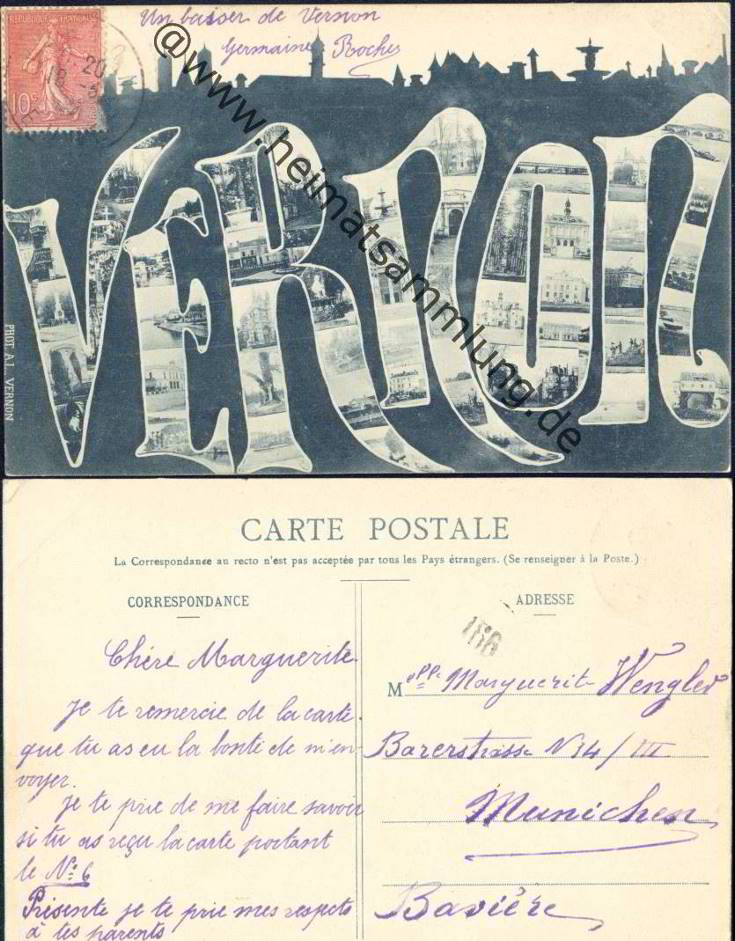 Un baiser de Vernon
Germaine Roches
REPUBLIQUE FRANÇAISE
10c
20
@www.heimatsammlung.de
VERNON
PHOT A.L. VERNON
CARTE POSTALE
La Correspondance au recto n'est pas acceptée par tous les Pays étrangers. (Se renseigner à la Poste.)
CORRESPONDANCE
Chère Marguerite
Je te remercie de la carte
que tu as eu la bonté de m'en-
voyer.
Je te prie de me faire savoir
si tu as reçu la carte portant
le No: 6
Présente je te prie mes respects
à tes parents
ADRESSE
186
Melle Marguerit Wengler
Barerstrasse N 34/III
Munichen
Bavière